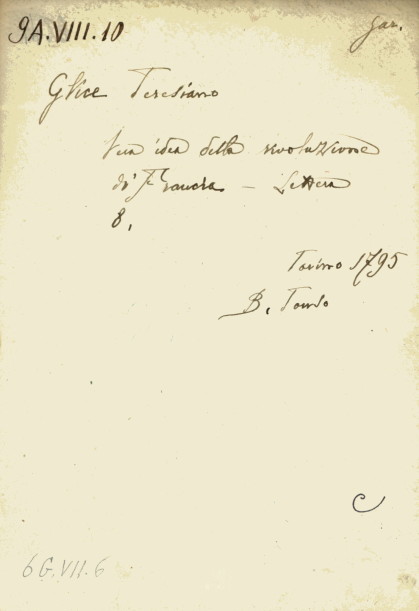 9A.VIII.10
Gar.
Glice Teresiano
Vera idea della rivoluzione
di Francia - Lettera
8.
Torino 1795
B. Tonso
C
6G.VII.6